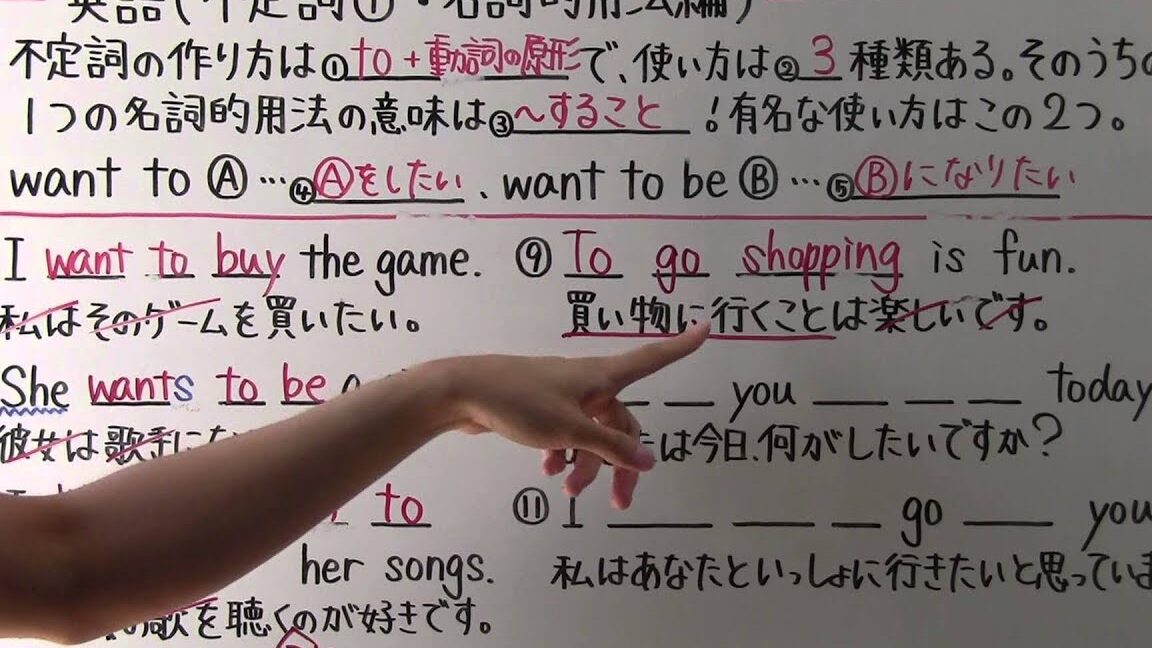 英語(不定詞①・名詞的用法編)
不定詞の作り方は①to+動詞の原形で、使い方は②3種類ある。そのうちの
1つの名詞的用法の意味は③~すること!有名な使い方はこの2つ。
want to Ⓐ…④Ⓐをしたい、want to be Ⓑ…⑤Ⓑになりたい
I want to buy the game.
私はそのゲームを買いたい。
She wants to be
彼女は歌手にな
to
her songs.
歌を聴くのが好きです。
⑨ To go shopping is fun.
買い物に行くことは楽しいです。
you ___ ___ ___ today
は今日、何がしたいですか?
⑪ I ___ ___ ___ go ___ you
私はあなたといっしょに行きたいと思っていま